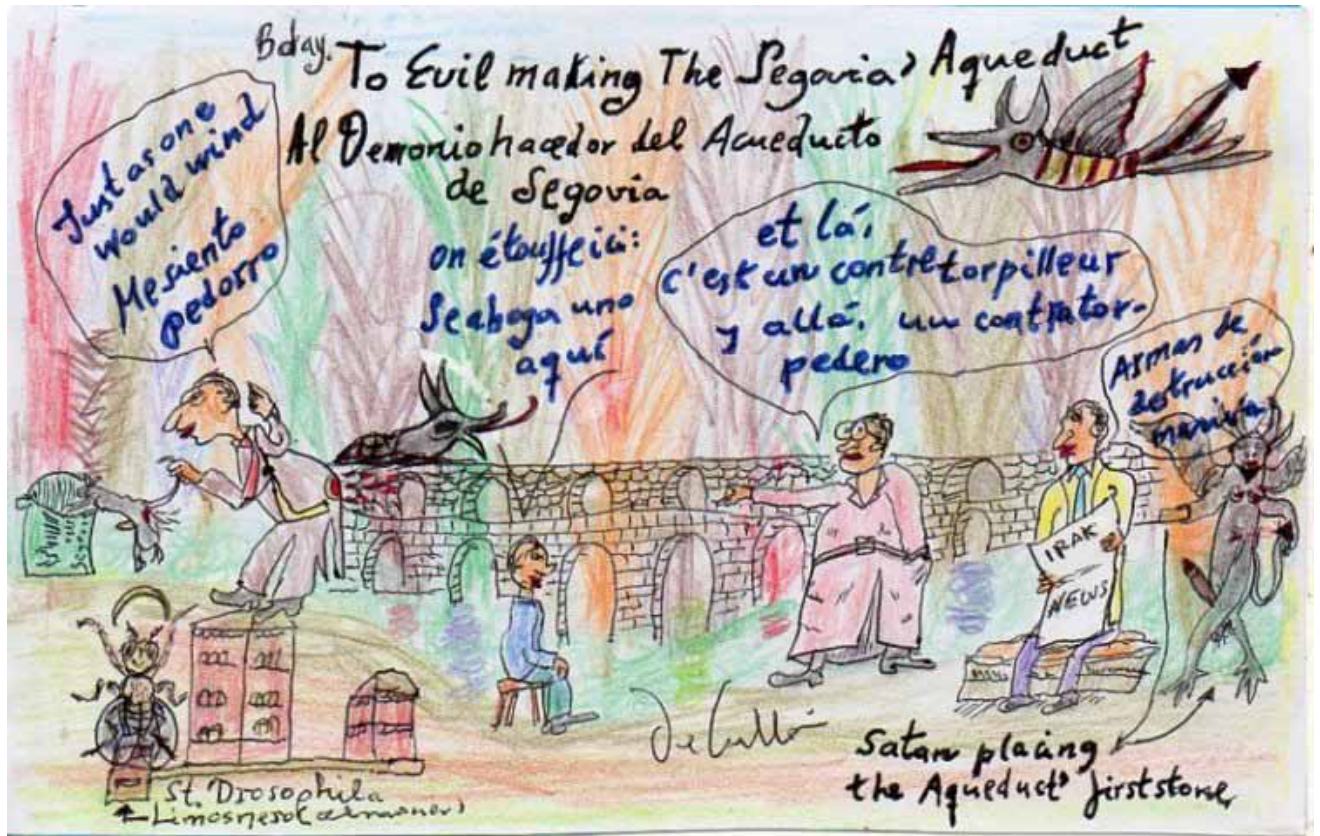 Bday. To Evil making The Segovia' Aqueduct
Al Demonio hacedor del Acueducto
de Segovia
Just as one
would wind
Me siento
pedorro
on étouffe ici:
Se ahoga uno
aquí
et lá,
c'est un contretorpilleur
y allá, un contrator-
pedero
Armas de
destrucción
masiva
IRAK
NEWS
St. Drosophila
Limosnero
Satan placing
the Aqueduct' first stone